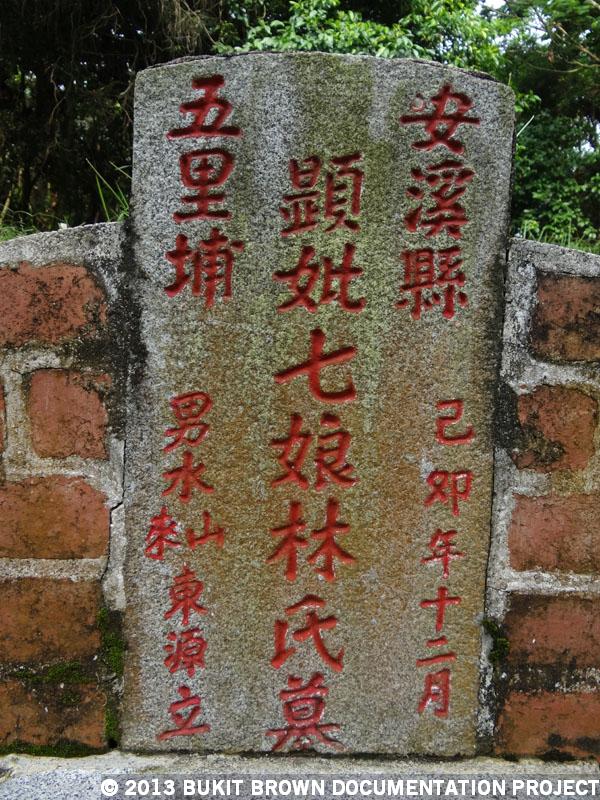 安溪縣
己卯年十二月
顯妣七娘林氏墓
五里埔
男水山来東源立
© 2013 BUKIT BROWN DOCUMENTATION PROJECT